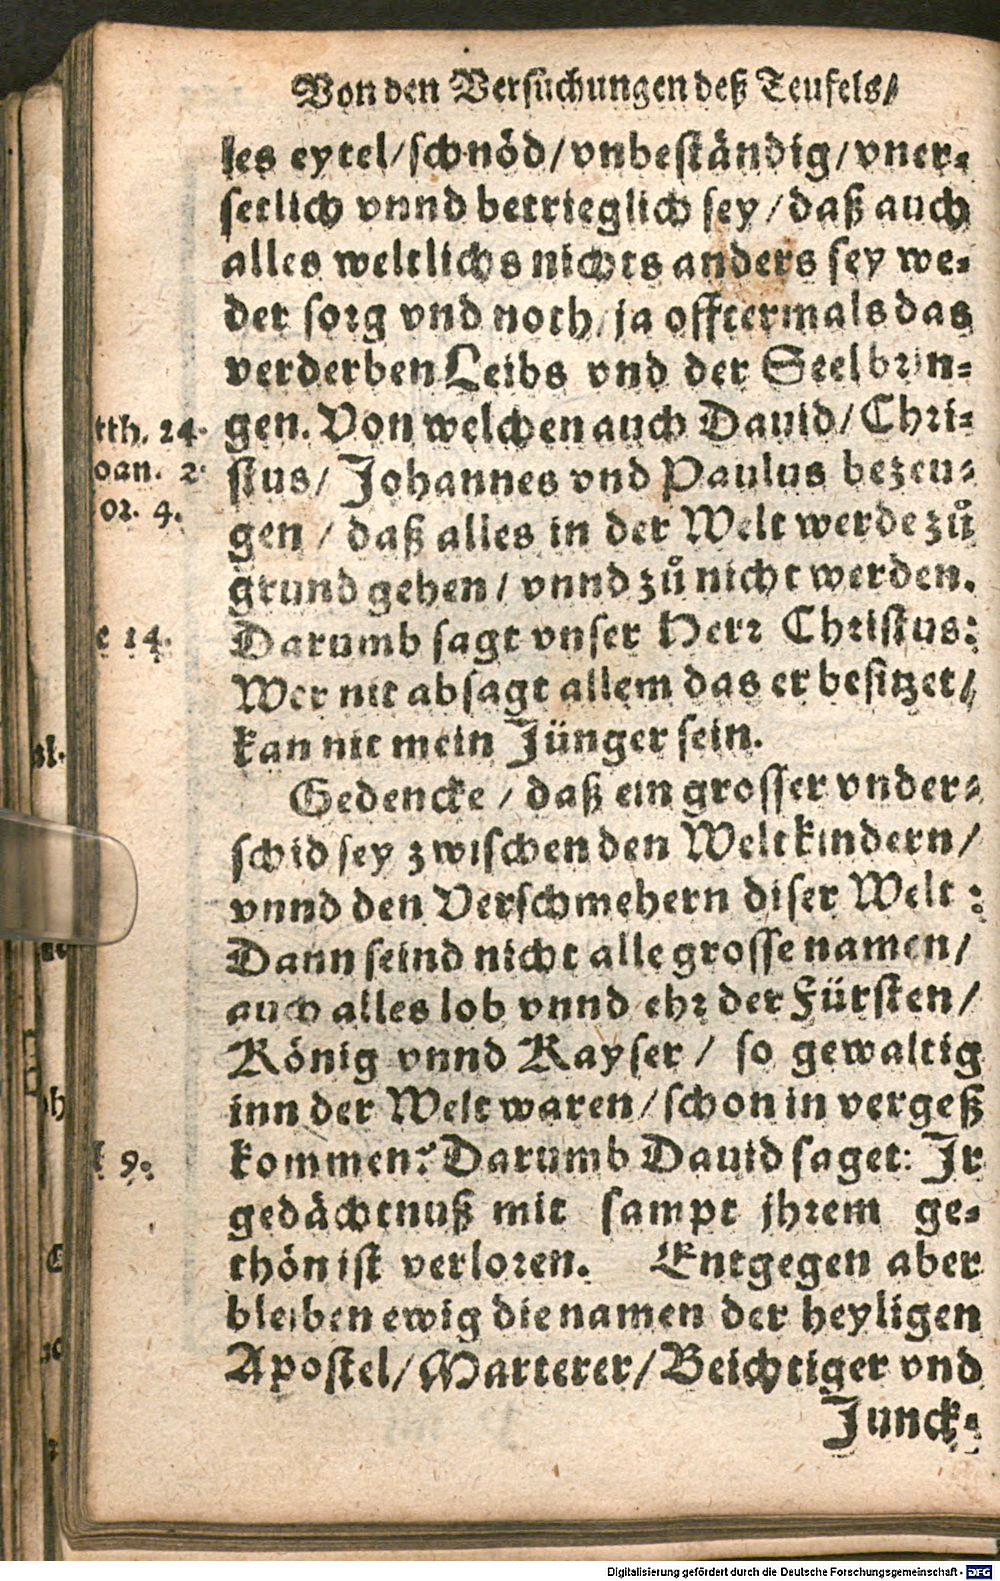 Von den Versuchungen deß Teufels/
les eytel/schnöd/vnbeständig/vner-
setlich vnnd betrieglich sey/daß auch
alles weltlichs nichts anders sey we-
der sorg vnd noth/ja offtermals das
verderben Leibs vnd der Seel brin-
gen. Von welchen auch Dauid/Chri-
stus/ Johannes vnd Paulus bezeu-
gen / daß alles in der Welt werde zů
grund gehen/ vnnd zů nicht werden.
Darumb sagt vnser Herr Christus:
Wer nit absagt allem das er besitzet/
kan nit mein Jünger sein.
Gedencke / daß ein grosser vnder-
schid sey zwischen den Weltkindern/
vnnd den Verschmehern diser Welt:
Dann seind nicht alle grosse namen/
auch alles lob vnnd ehr der Fürsten/
König vnnd Kayser/ so gewaltig
inn der Welt waren/schon in vergeß
kommen? Darumb Dauid saget: Jr
gedächtnuß mit sampt jhrem ge-
thön ist verloren. Entgegen aber
bleiben ewig die namen der heyligen
Apostel/Marterer/Beichtiger vnd
Junck-
tth. 24.
oan. 2.
or. 4.
e 14.
l 9.
Digitalisierung gefördert durch die Deutsche Forschungsgemeinschaft - DFG